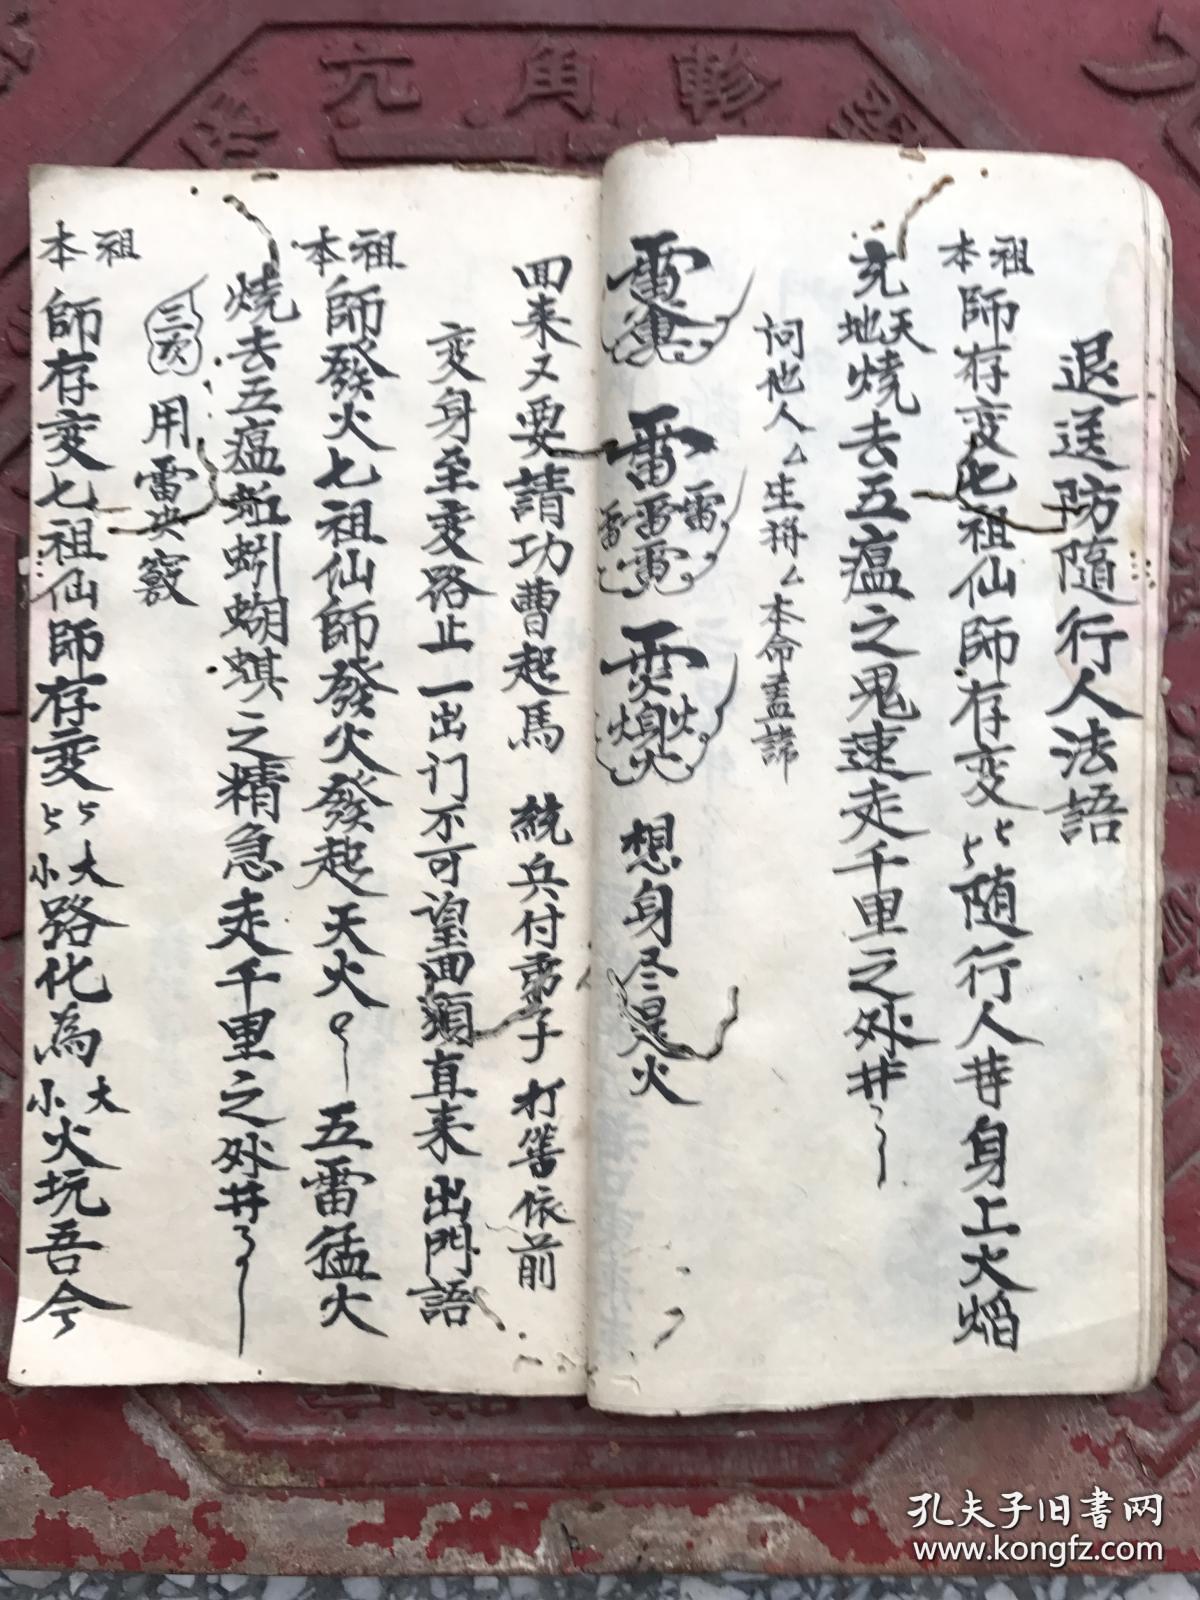 亢角軫
退送防隨行人法語
祖本師存変七祖仙師存变隨行人身上火焰
充天地燒去五瘟之鬼速走千里之外
问他人生本命
想身尽是火
回来又要請功曹起馬 統兵付童子 打筶依前
变身至变路止一出门不可望面頭直来出門語
祖本師發火七祖仙師發火發起天火 五雷猛火
燒去五瘟蚯蚓蝴蜞之精急走千里之外
三次用雷決竅
祖本師存变七祖仙師存变大小路化為大小火坑吾今
孔夫子旧书网
www.kongfz.com